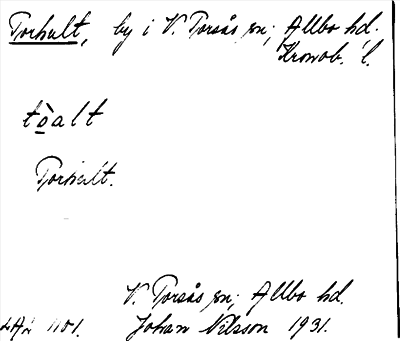 Torhult, by i V. Torsås sn; Allbo hd.
Kronob. l.
tòalt
Torhult.
V. Torsås sn; Allbo hd.
Johan Nilsson 1931.